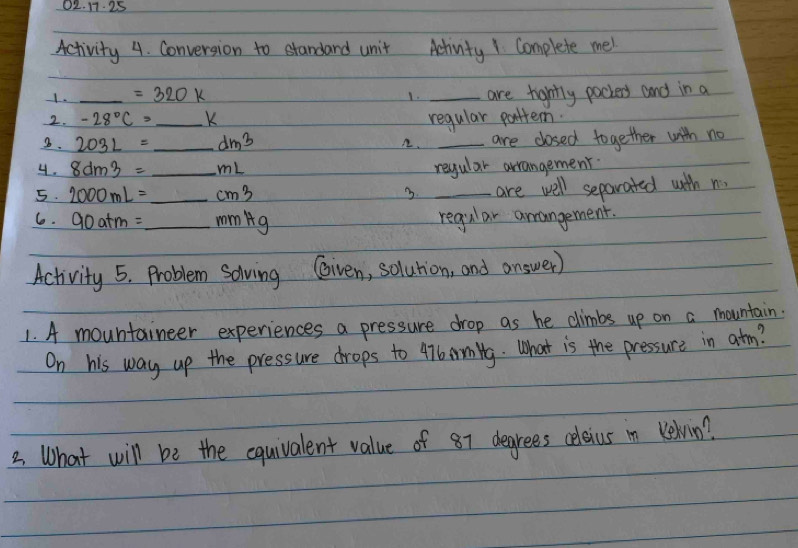 02.17.25
Activity 4. Conversion to standard unit
1. ____ = 320 K
2. -28°C = ____ K
3. 203L = ____ dm3
4. 8dm3 = ____ mL
5. 2000mL = ____ cm3
6. 90 atm = ____ mmHg
Activity 1. Complete me!
1. ____ are tightly packed and in a
regular pattern.
2. ____ are closed together with no
regular arrangement.
3 ____ are well separated with no
regular arrangement.
Activity 5. Problem Solving (Given, solution, and answer)
1. A mountaineer experiences a pressure drop as he climbs up on a mountain.
On his way up the pressure drops to 476 mmHg. What is the pressure in atm?
2. What will be the equivalent value of 87 degrees celsius in Kelvin?